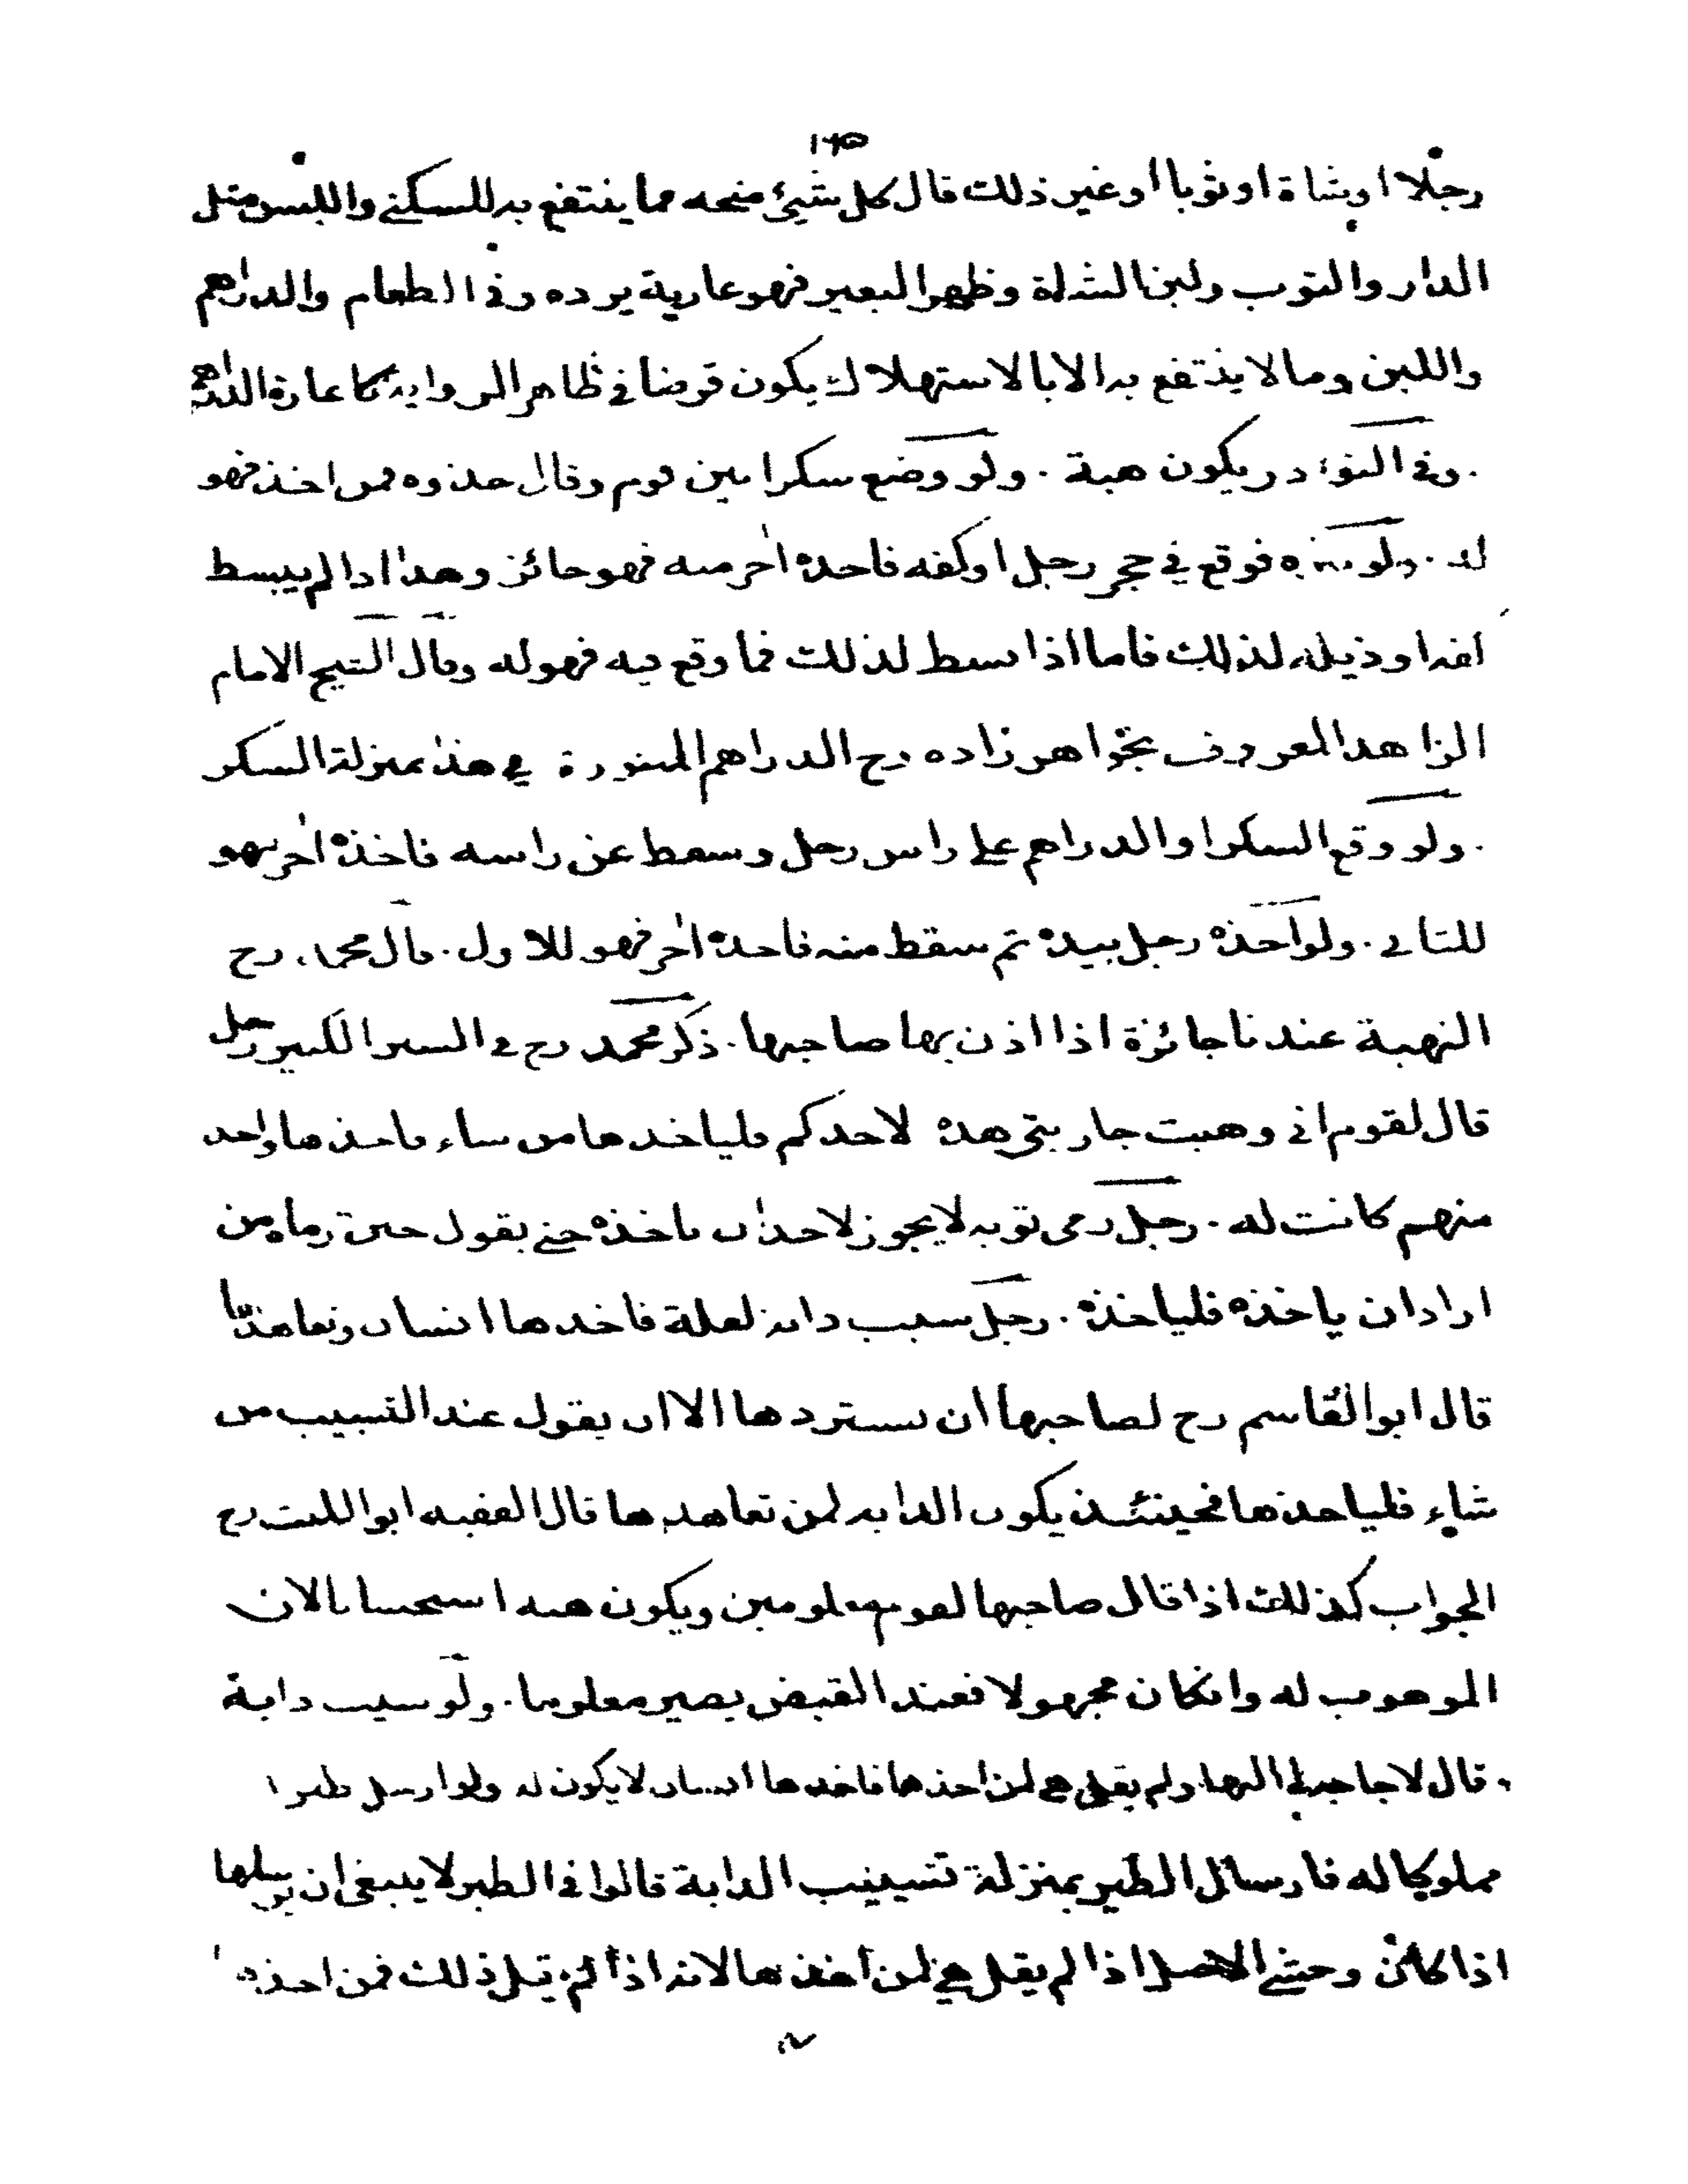 ١٢٥
رجلا او شاة او ثوبا او غير ذلك قال كل شيئ منحه مما ينتفع به للسكنى واللبس مثل
الدار والثوب ولبن الشاة وظهر البعير فهو عارية يرده وفى الطعام والدراهم
واللبن وما لا ينتفع به الا بالاستهلاك يكون قرضا فى ظاهر الرواية كاعارة الدراهم
وفى النوادر يكون هبة . ولو وضع سكرا بين قوم وقال خذوه فمن اخذ فهو
له . ولو فوقع فى حجر رجل او كفه فاخذه اخر منه فهو جائز وهذا اذا لم يبسط
او ذيله لذلك فاما اذا بسط لذلك فما وقع فيه فهو له وقال الشيخ الامام
الزاهد المعروف بخواهر زاده رح الدراهم المنثورة فى هذا بمنزلة السكر
. ولو وقع السكر او الدراهم على راس رجل وسقط عن راسه فاخذه اخر فهو
للثانى . ولو اخذه رجل بيده ثم سقط منه فاخذه اخر فهو للاول . قال محمد رح
النهبة عندنا جائزة اذا اذن بها صاحبها . ذكر محمد رح فى السير الكبير رجل
قال لقوم انى وهبت جاريتى هذه لاحدكم فلياخذها من شاء فاخذها واحد
منهم كانت له . رجل رمى ثوبه لا يجوز لاحد ان ياخذه حتى يقول حين رماه من
اراد ان ياخذه فلياخذه . رجل سيب دابته لعلة فاخذها انسان وتعاهدها
قال ابو القاسم رح لصاحبها ان يستردها الا ان يقول عند التسييب من
شاء فلياخذها فحينئذ يكون الدابة لمن تعاهدها قال الفقيه ابو الليث رح
الجواب كذلك اذا قال صاحبها لقوم معلومين ويكون هبة استحسانا لان
الموهوب له وان كان مجهولا فعند القبض يصير معلوما . ولو سيب دابة
وقال لا حاجة لى اليها ولم يقل هى لمن اخذها فاخذها انسان لا يكون له ولو ارسل طيرا
مملوكا له فارسال الطير بمنزلة تسييب الدابة قالوا فى الطير لا ينبغى ان يرسلها
اذا كان وحشى الاصل اذا لم يقل هى لمن اخذها لانه اذا لم يقل ذلك فمن اخذه